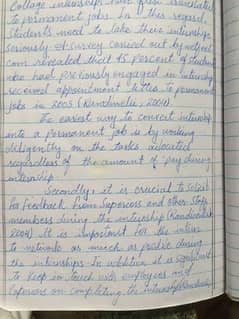 College internships have been associated
to permanent jobs. In this regard,
Students need to take these internships
seriously. A survey carried out by
com revealed that 45 percent of students
who had previously engaged in internship
received appointment letters to permanent
jobs in 2003 (Kandimelic, 2004).
The easiest way to convert internship
into a permanent job is by working
diligently on the tasks allocated
regardless of the amount of pay during
internship.
Secondly, it is crucial to solicit
for feedback from superiors and other staff
members during the internship
2004) It is important for the intern
to network as much as possible during
the internships. In addition it is significant
to keep in touch with employees and
on completing the internship